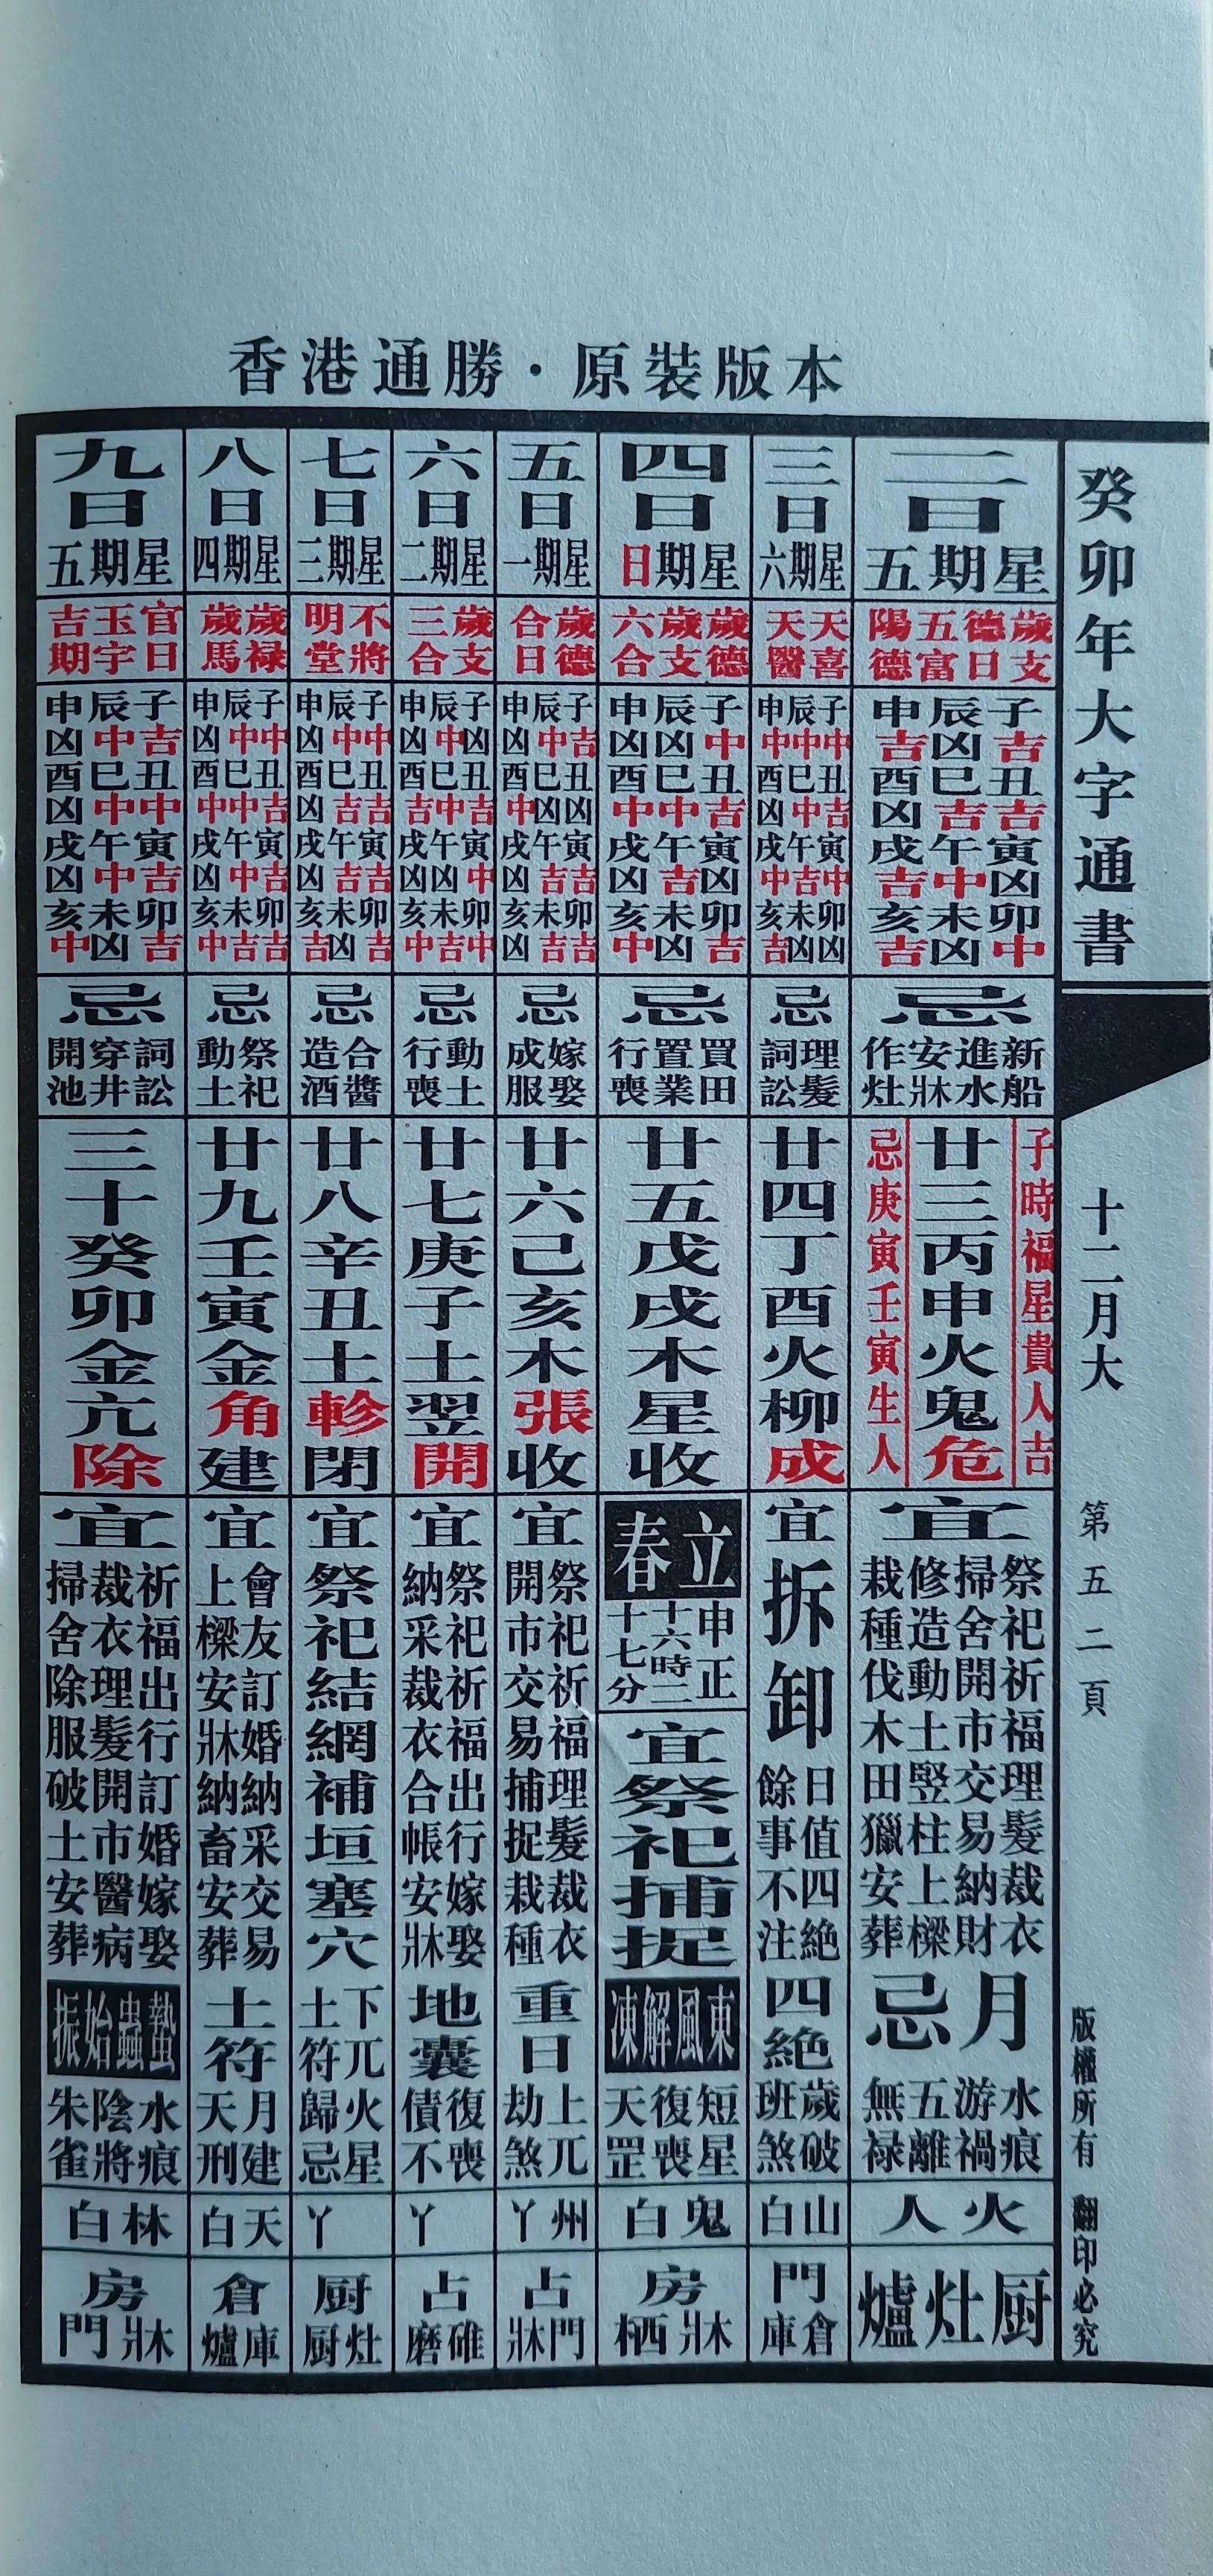 香港通勝·原裝版本
癸卯年大字通書
十二月大
第五二頁
版權所有 翻印必究
二日
星期五
歲支德日五富陽德
子吉丑吉寅凶卯中
辰凶巳吉午中未凶
申吉酉凶戌吉亥吉
忌
新船進水安牀作灶
子時福星貴人吉
廿三丙申火鬼危
忌庚寅壬寅生人
宜
祭祀祈福理髮裁衣
掃舍開市交易納財
修造動土竪柱上樑
栽種伐木田獵安葬
月忌
水痕游禍五離無祿
火人
厨灶爐
三日
星期六
天喜天醫
子中丑吉寅中卯凶
辰中巳中午吉未凶
申中酉凶戌中亥吉
忌
理髮詞訟
廿四丁酉火柳成
宜
拆卸
日值四絶
餘事不注
四絶
歲破班煞
山白
門
倉庫
四日
星期日
歲德歲支六合
子中丑吉寅凶卯吉
辰凶巳中午吉未凶
申凶酉中戌凶亥中
忌
買田置業行喪
廿五戊戌木星收
立春
申正十六時二十七分
宜祭祀捕捉
東風解凍
短星復喪天罡
鬼白
房
牀栖
五日
星期一
歲德合日
子吉丑凶寅吉卯吉
辰中巳凶午吉未吉
申凶酉中戌凶亥凶
忌
嫁娶成服
廿六己亥木張收
宜
祭祀祈福理髮裁衣
開市交易捕捉栽種
重日
上兀劫煞
州丫
占
門牀
六日
星期二
歲支三合
子凶丑吉寅中卯中
辰中巳中午凶未吉
申凶酉吉戌凶亥中
忌
動土行喪
廿七庚子土翌開
宜
祭祀祈福出行嫁娶
納采裁衣合帳安牀
地囊
復喪債不
丫
占
碓磨
七日
星期三
不將明堂
子中丑吉寅吉卯吉
辰中巳吉午吉未凶
申凶酉凶戌凶亥吉
忌
合醬造酒
廿八辛丑土軫閉
宜
祭祀結網補垣塞穴
下兀土符
火星歸忌
丫
厨
灶厨
八日
星期四
歲祿歲馬
子中丑吉寅吉卯吉
辰中巳中午中未吉
申凶酉中戌凶亥中
忌
祭祀動土
廿九壬寅金角建
宜
會友訂婚納采交易
上樑安牀納畜安葬
土符
月建天刑
天白
倉
庫爐
九日
星期五
官日玉宇吉期
子吉丑中寅吉卯吉
辰中巳中午中未凶
申凶酉凶戌凶亥中
忌
詞訟穿井開池
三十癸卯金亢除
宜
祈福出行訂婚嫁娶
裁衣理髮開市醫病
掃舍除服破土安葬
蟄蟲始振
水痕陰將朱雀
林白
房
牀門